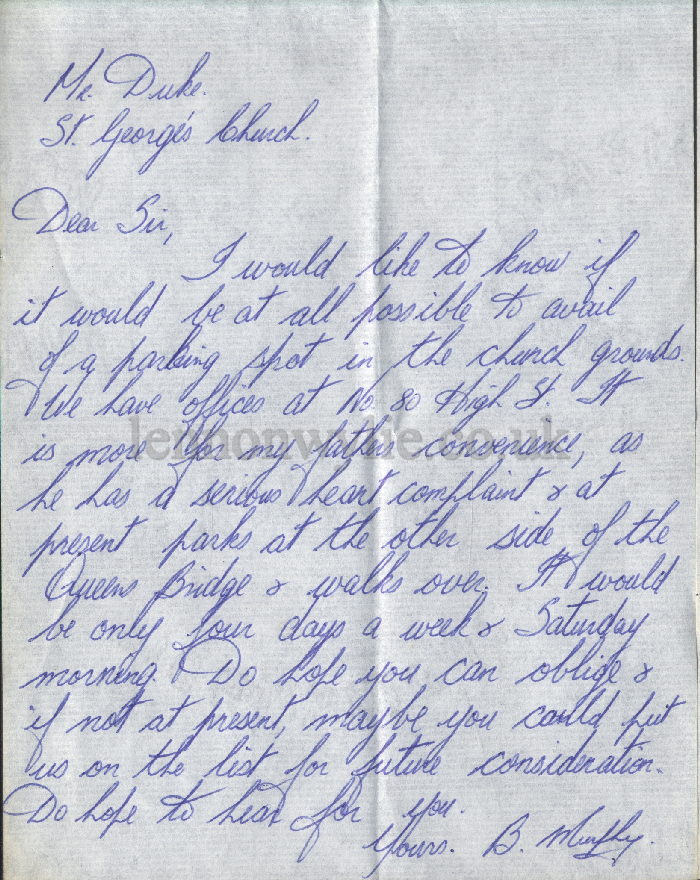 Mr. Duke.
St. George's Church.
Dear Sir,
I would like to know if
it would be at all possible to avail
of a parking spot in the church grounds.
We have offices at No. 80 High St. It
is more for my father's convenience, as
lennonwylie.co.uk
he has a serious heart complaint & at
present parks at the other side of the
Queens Bridge & walks over. It would
be only four days a week & Saturday
morning. Do hope you can oblige &
if not at present, maybe you could put
us on the list for future consideration.
Do hope to hear for you.
Yours. B. Murphy.